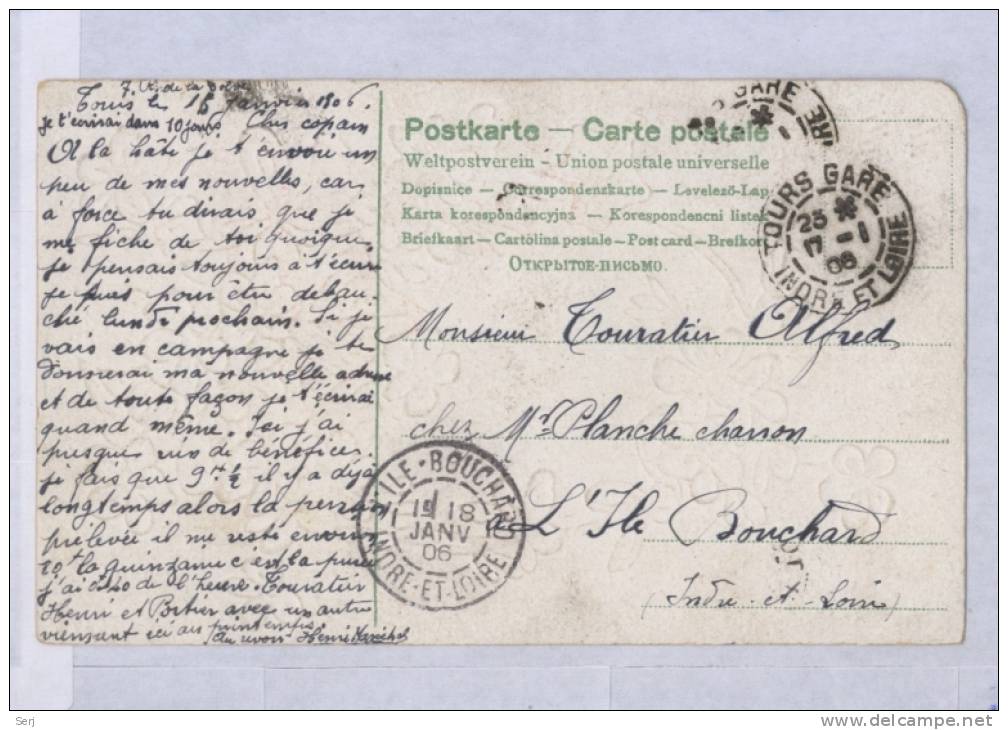 Tours le 16 Janvier 1906.
je t'écrirai dans 10 jours. Cher copain
A la hâte je t'envoie un
peu de mes nouvelles, car
à force tu dirais que je
me fiche de toi quoique
je pensais toujours à t'écrire
je puis pour être debau
ché lundi prochain. Si je
vais en campagne je te
donnerai ma nouvelle adresse
et de toute façon je t'écrirai
quand même. Ici j'ai
presque rien de bénéfice.
je fais que 9 H ½ il y a déjà
longtemps alors la pension
prélevée il me reste environ
10f la quinzaine c'est la purée
j'ai de l'heure. Touratier
Henri et Portier avec un autre
viennent ici au printemps.
au revoir Henri
Postkarte — Carte postale
Weltpostverein – Union postale universelle
Dopisnice — Correspondenzkarte — Levelező-Lap
Karta korespondencyjna — Korespondencni listek
Briefkaart – Cartolina postale – Post card – Brefkort
ОТКРЫТОЕ-ПИСЬМО.
GARE
IRE
TOURS GARE
23
17 -1
06
INDRE ET LOIRE
Monsieur Touratier Alfred
chez Mr Planche charron
à L'Ile Bouchard
(Indre-et-Loire)
L'ILE-BOUCHARD
18
JANV
06
INDRE-ET-LOIRE
Serj
www.delcampe.net